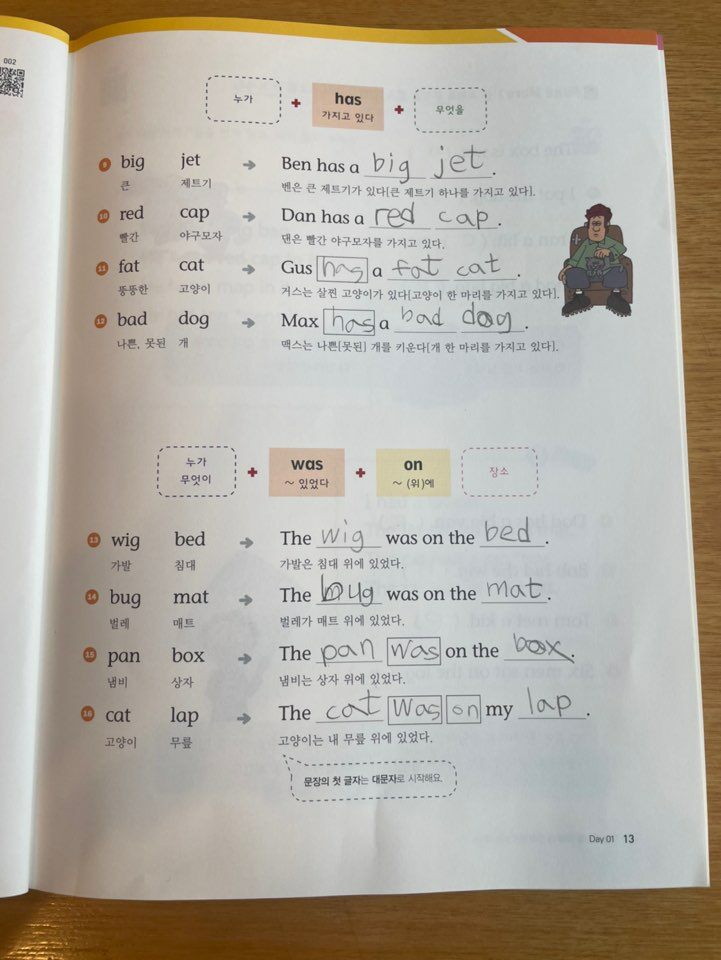 002
누가 + has 가지고 있다 + 무엇을
9 big jet → Ben has a big jet.
큰 제트기 벤은 큰 제트기가 있다[큰 제트기 하나를 가지고 있다].
10 red cap → Dan has a red cap.
빨간 야구모자 댄은 빨간 야구모자를 가지고 있다.
11 fat cat → Gus has a fat cat.
뚱뚱한 고양이 거스는 살찐 고양이가 있다[고양이 한 마리를 가지고 있다].
12 bad dog → Max has a bad dog.
나쁜, 못된 개 맥스는 나쁜[못된] 개를 키운다[개 한 마리를 가지고 있다].
누가 무엇이 + was ~ 있었다 + on ~ (위)에 장소
13 wig bed → The wig was on the bed.
가발 침대 가발은 침대 위에 있었다.
14 bug mat → The bug was on the mat.
벌레 매트 벌레가 매트 위에 있었다.
15 pan box → The pan was on the box.
냄비 상자 냄비는 상자 위에 있었다.
16 cat lap → The cat was on my lap.
고양이 무릎 고양이는 내 무릎 위에 있었다.
문장의 첫 글자는 대문자로 시작해요.
Day 01 13